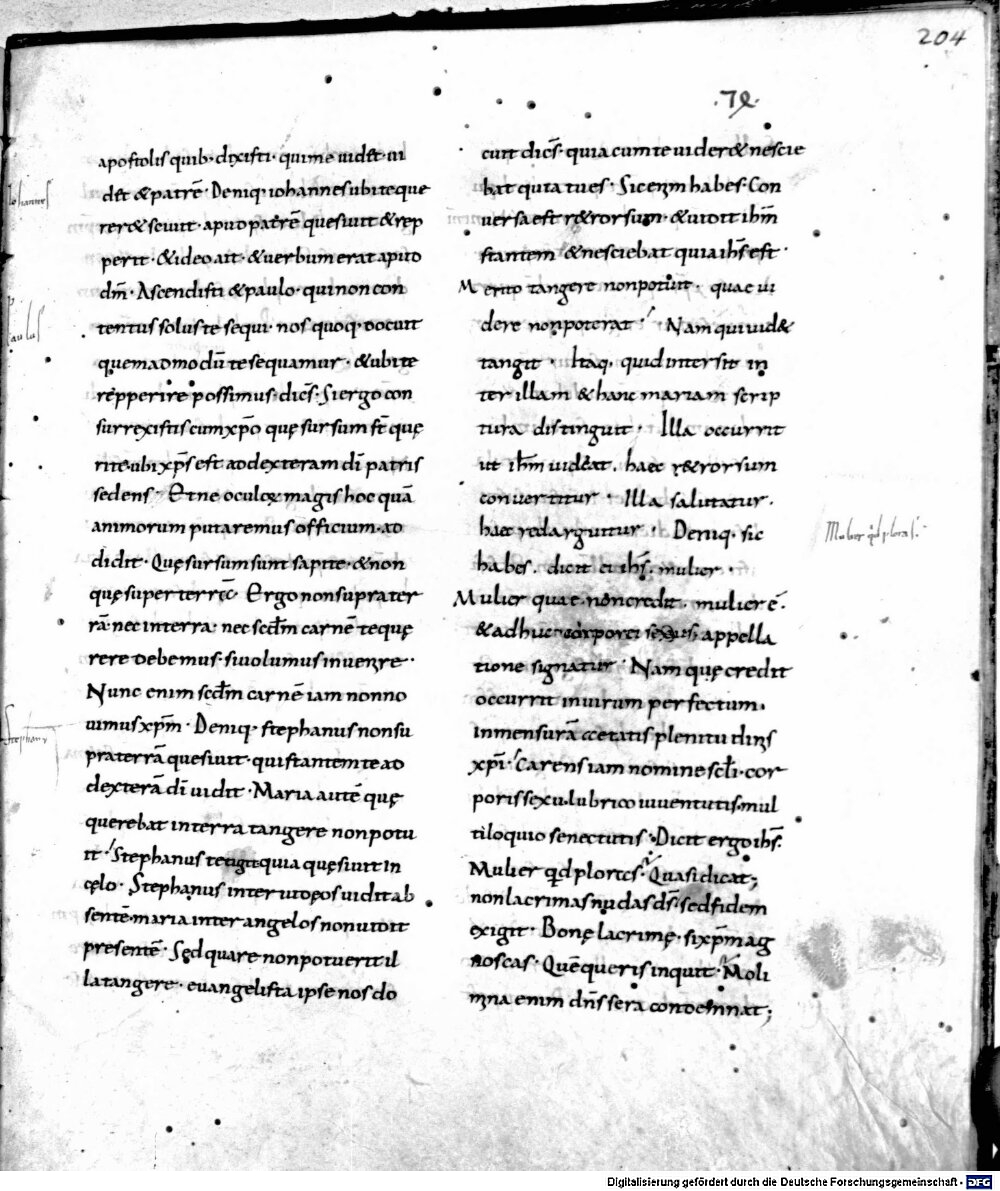 204
·79·
apostolis quib· dixisti· qui me uidet ui
det & patrē· Deniq· iohannes ubi te que
rer& sciuit· apud patrē quesiuit & rep
perit· & ideo ait· & uerbum erat apud
dm̄· Ascendisti & paulo· qui non con
tentus solus te sequi· nos quoq· docuit
quemadmodū te sequamur· & ubi te
repperire possimus· dicēs· Si ergo con
surrexistis cum xp̄o quę sursum s̄t quę
rite ubi xp̄s est ad dexteram dī patris
sedens· Et ne oculoꝝ magis hoc quā
animorum putaremus officium· ad
didit· Quę sursum sunt sapite· & non
quę super terrā· Ergo non supra ter
rā· nec in terra· nec scd̄m carnē te quę
rere debemus· si uolumus inuenire·
Nunc enim scd̄m carnē iam non no
uimus xp̄m· Deniq· stephanus non su
pra terrā quesiuit· qui stantem te ad
dexterā dī uidit· Maria autē quę
querebat in terra tangere non potu
it· Stephanus tetigit quia quęsiuit in
cęlo· Stephanus inter iudęos uidit ab
sentē· maria inter angelos non uidit
presentē· Sed quare non potuerit il
la tangere· euangelista ipse nos do
cuit dicēs· quia cum te uider& nescie
bat quia tu es· Sic enim habes· Con
uersa est r&rorsum· & uidit ih̄m
stantem & nesciebat quia ih̄s est·
Merito tangere non potuit· quae ui
dere non poterat· Nam qui uid&
tangit· Itaq· quid intersit in
ter illam & hanc mariam scrip
tura distinguit· Illa occurrit
ut ih̄m uideat· haec r&rorsum
conuertitur· Illa salutatur·
haec redarguitur· Deniq· sic
habes· dicit ei ih̄s· mulier·
Mulier quae non credit· mulier ē·
& adhuc corporei sexus· appella
tione signatur· Nam quę credit
occurrit in uirum perfectum·
in mensurā aetatis plenitudinis
xp̄i· Carens iam nomine scl̄i· cor
poris sexu· lubrico iuuentutis· mul
tiloquio senectutis· Dicit ergo ih̄s·
Mulier qd ploras· Quasi dicat;
non lacrimas nudas ds̄· sed fidem
exigit· Bonę lacrimę· si xp̄m ag
noscas· Quē queris inquit· Moli
mina enim dn̄s sera condemnat;
Iohannes
Paulus
Stephanus
Mulier qd ploras·
Digitalisierung gefördert durch die Deutsche Forschungsgemeinschaft · DFG